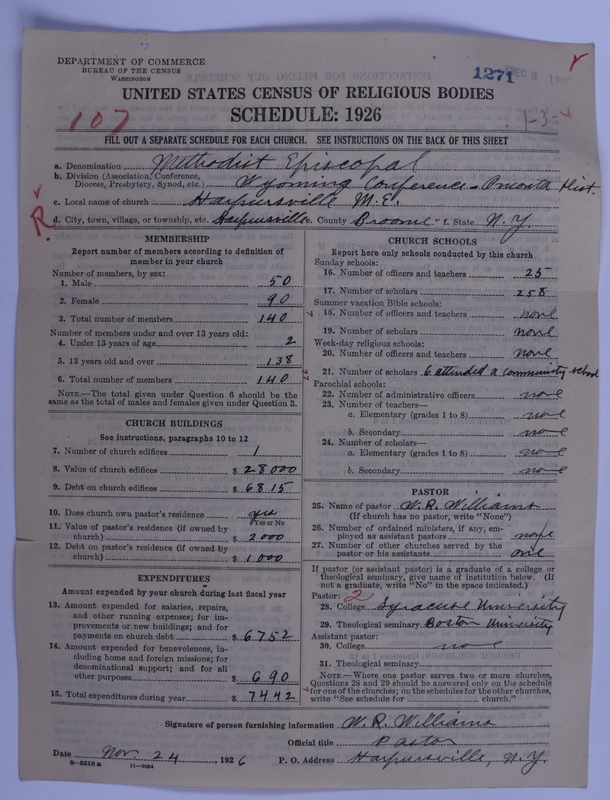 DEPARTMENT OF COMMERCE
BUREAU OF THE CENSUS
WASHINGTON
1271
DEC 2 192
UNITED STATES CENSUS OF RELIGIOUS BODIES
SCHEDULE: 1926
107
1-3=4
FILL OUT A SEPARATE SCHEDULE FOR EACH CHURCH. SEE INSTRUCTIONS ON THE BACK OF THIS SHEET
a. Denomination Methodist Episcopal
b. Division (Association, Conference, Diocese, Presbytery, Synod, etc.) Wyoming Conference - Oneonta Dist.
c. Local name of church Harpursville M.E.
R
d. City, town, village, or township, etc. Harpursville e. County Broome f. State N.Y.
MEMBERSHIP
Report number of members according to definition of
member in your church
Number of members, by sex:
1. Male 50
2. Female 90
3. Total number of members 140
Number of members under and over 13 years old:
4. Under 13 years of age 2
5. 13 years old and over 138
6. Total number of members 140
NOTE.—The total given under Question 6 should be the
same as the total of males and females given under Question 3.
CHURCH BUILDINGS
See instructions, paragraphs 10 to 12
7. Number of church edifices 1
8. Value of church edifices $ 28,000
9. Debt on church edifices $ 6815
10. Does church own pastor's residence yes
Yes or No
11. Value of pastor's residence (if owned by
church) $ 2000
12. Debt on pastor's residence (if owned by
church) $ 1,000
EXPENDITURES
Amount expended by your church during last fiscal year
13. Amount expended for salaries, repairs,
and other running expenses; for im-
provements or new buildings; and for
payments on church debt $ 6752
14. Amount expended for benevolences, in-
cluding home and foreign missions; for
denominational support; and for all
other purposes $ 690
15. Total expenditures during year $ 7442
CHURCH SCHOOLS
Report here only schools conducted by this church
Sunday schools:
16. Number of officers and teachers 25
17. Number of scholars 258
Summer vacation Bible schools:
18. Number of officers and teachers none
19. Number of scholars none
Week-day religious schools:
20. Number of officers and teachers none
21. Number of scholars 6 attended a community school
Parochial schools:
22. Number of administrative officers none
23. Number of teachers—
a. Elementary (grades 1 to 8) none
b. Secondary none
24. Number of scholars—
a. Elementary (grades 1 to 8) none
b. Secondary none
PASTOR
25. Name of pastor W. R. Williams
(If church has no pastor, write "None")
26. Number of ordained ministers, if any, em-
ployed as assistant pastors none
27. Number of other churches served by the
pastor or his assistants one
If pastor (or assistant pastor) is a graduate of a college or
theological seminary, give name of institution below. (If
not a graduate, write "No" in the space indicated.)
Pastor: 2
28. College Syracuse University
29. Theological seminary Boston University
Assistant pastor:
30. College none
31. Theological seminary
NOTE.—Where one pastor serves two or more churches,
Questions 28 and 29 should be answered only on the schedule
for one of the churches; on the schedules for the other churches,
write "See schedule for church."
Signature of person furnishing information W. R. Williams
Official title Pastor
Date Nov. 24, 1926 P. O. Address Harpursville, N.Y.